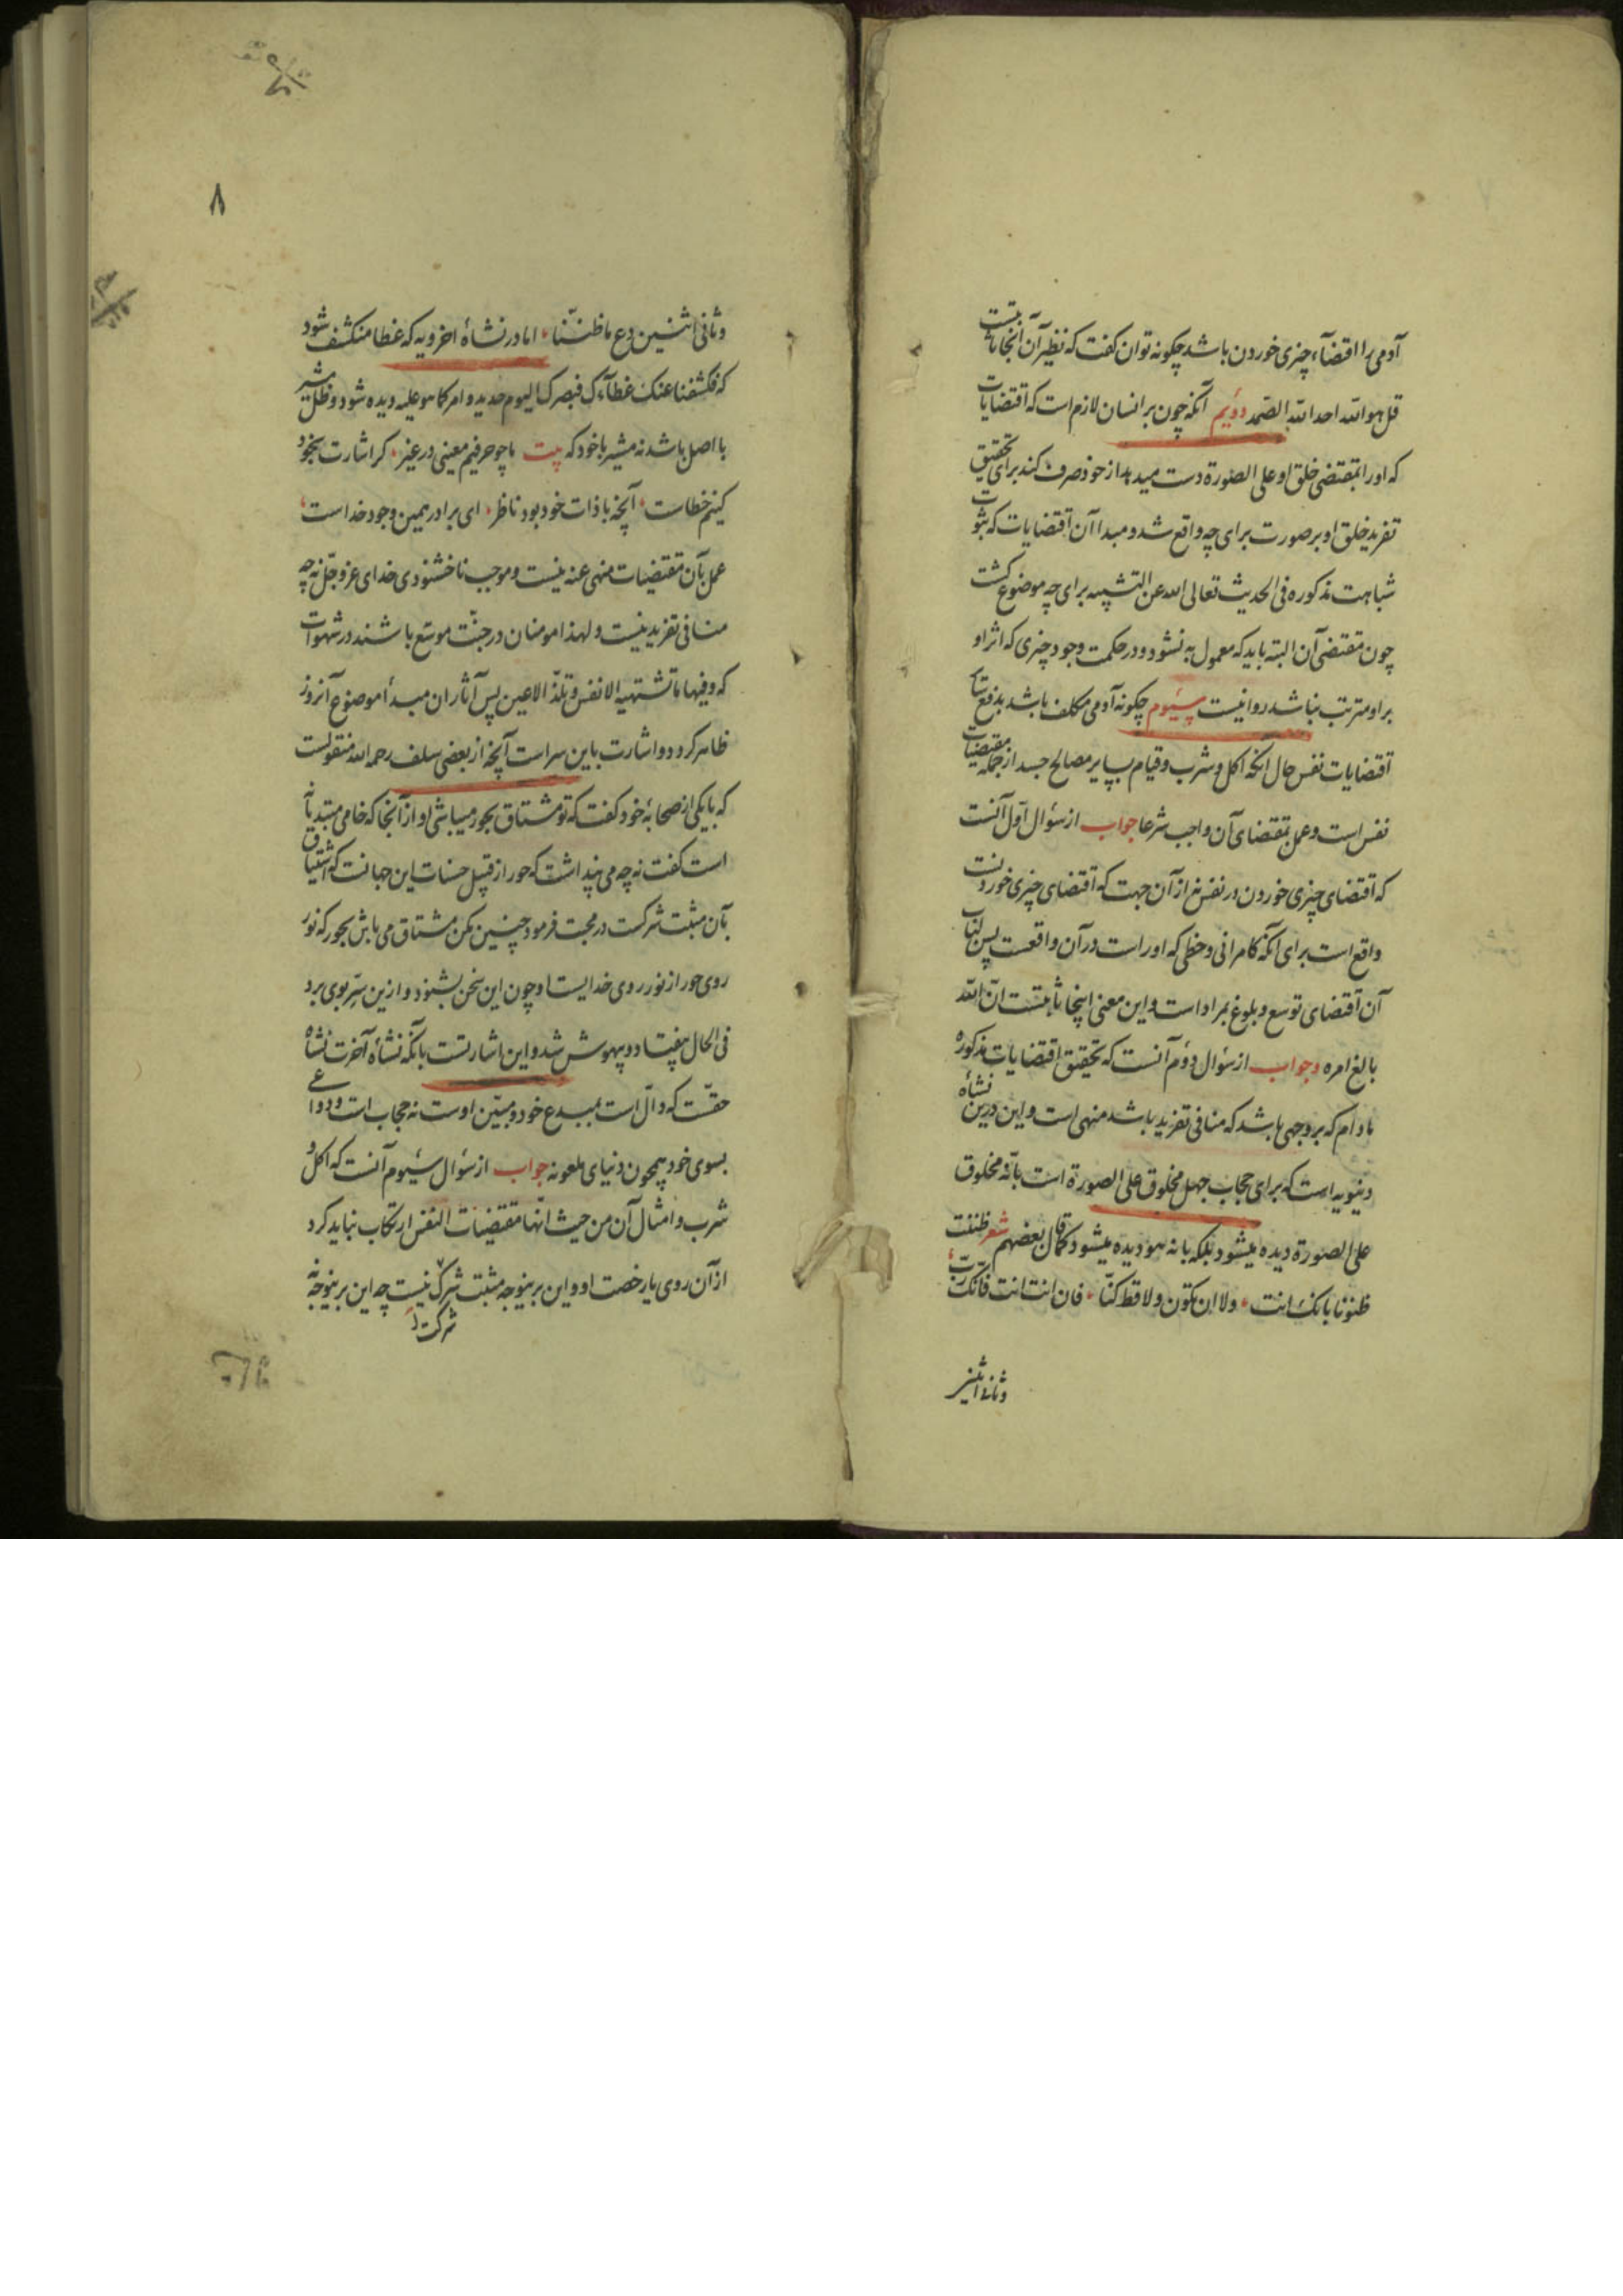 آدمی را اقتضاء چیزی خوردن باشد چکونه توان کفت که نظیر آن آنجا ثابت نیست
قل هو الله احد الله الصمد دوئیم آنکه چون بر انسان لازم است که اقتضایات
که او را بمقتضی خلق او علی الصورة دست میدهد از خود صرف کند برای تحقیق
تفرید خلق او بر صورت برای چه واقع شد و مبدا آن اقتضایات که بثوت
شباهت مذکوره فی الحدیث تعالی الله عن التشبیه برای چه موضوع کشت
چون مقتضی آن البته باید که معمول به نشود و در حکمت وجود چیزی که اثر او
بر او مترتب نباشد روا نیست سیئوم چکونه آدمی مکلف باشد بدفع
اقتضایات نفس حال آنکه اکل و شرب و قیام بسایر مصالح جسد از جمله مقتضیات
نفس است و عمل بمقتضای آن واجب شرعا جواب از سؤال اول آنست
که اقتضای چیزی خوردن در نفس نه از آن جهت که اقتضای چیزی خوردنست
واقع است برای آنکه کامرانی و حظی که او راست در آن واقعست پس
آن اقتضای توسع و بلوغ بمراد است و این معنی اینجا ثابتست ان الله
بالغ امره وجواب از سؤال دوئم آنست که تحقیق اقتضایات مذکوره
مادام که بر وجهی باشد که منافی تفرید باشد منهی است و این درین نشأه
دنیویه است که برای حجاب جهل مخلوق علی الصورة است بانه مخلوق
علی الصورة دیده نمیشود بلکه بانه هو دیده میشود کما قال بعضهم شعر ظننت
ظنونا بانک انت ولا ان تکون ولا قط کنا فان انت انت فانک رب
وثانی اثنین
۸
وثانی اثنین دع ما ظننا اما در نشأهٔ اخرویه که غطا منکشف شود
که فکشفنا عنک غطاءک فبصرک الیوم حدید و امر کما هو علیه دیده شود و ظل مشیر
با اصل باشد نه مشیر با خود که بیت ما چو حرفیم معینی در غیر کر اشارت بخود
کنیم خطاست آنچه با ذات خود بود ناظر ای برادر همین وجود خداست
عمل بآن مقتضیات منهی عنه نیست و موجب ناخشنودی خدای عز و جل نه چه
منافی تفرید نیست و لهذا مومنان در جنت موسع باشند در شهوات
که وفیها ما تشتهیه الانفس و تلذ الاعین پس آثار ان مبدأ موضوع آنروز
ظاهر کردد و اشارت باین سر است آنچه از بعضی سلف رحمه الله منقولست
که با یکی از صحابهٔ خود کفت که تو مشتاق بحور میباشی او از آنجا که خامی مبتدیانه
است کفت نه چه می پنداشت که حور از قبیل حسنات این جهانست که اشتیاق
بآن مثبت شرکست در محبت فرمود چنین مکن مشتاق می باش بحور که نور
روی حور از نور روی خدایست او چون این سخن بشنود و ازین سر بوی برد
فی الحال بیفتاد و بیهوش شد و این اشارتست بآنکه نشأه آخرت نشأه
حقست که دال است بمبدع خود و مبین اوست نه حجاب است و دواعی
بسوی خود همچون دنیای ملعونه جواب از سؤال سیئوم آنست که اکل و
شرب و امثال آن من حیث انها مقتضیات النفس ارتکاب نباید کرد
از آن روی یا رخصت او و این برینوجه مثبت شرک نیست چه این برینوجه نه
شرکت